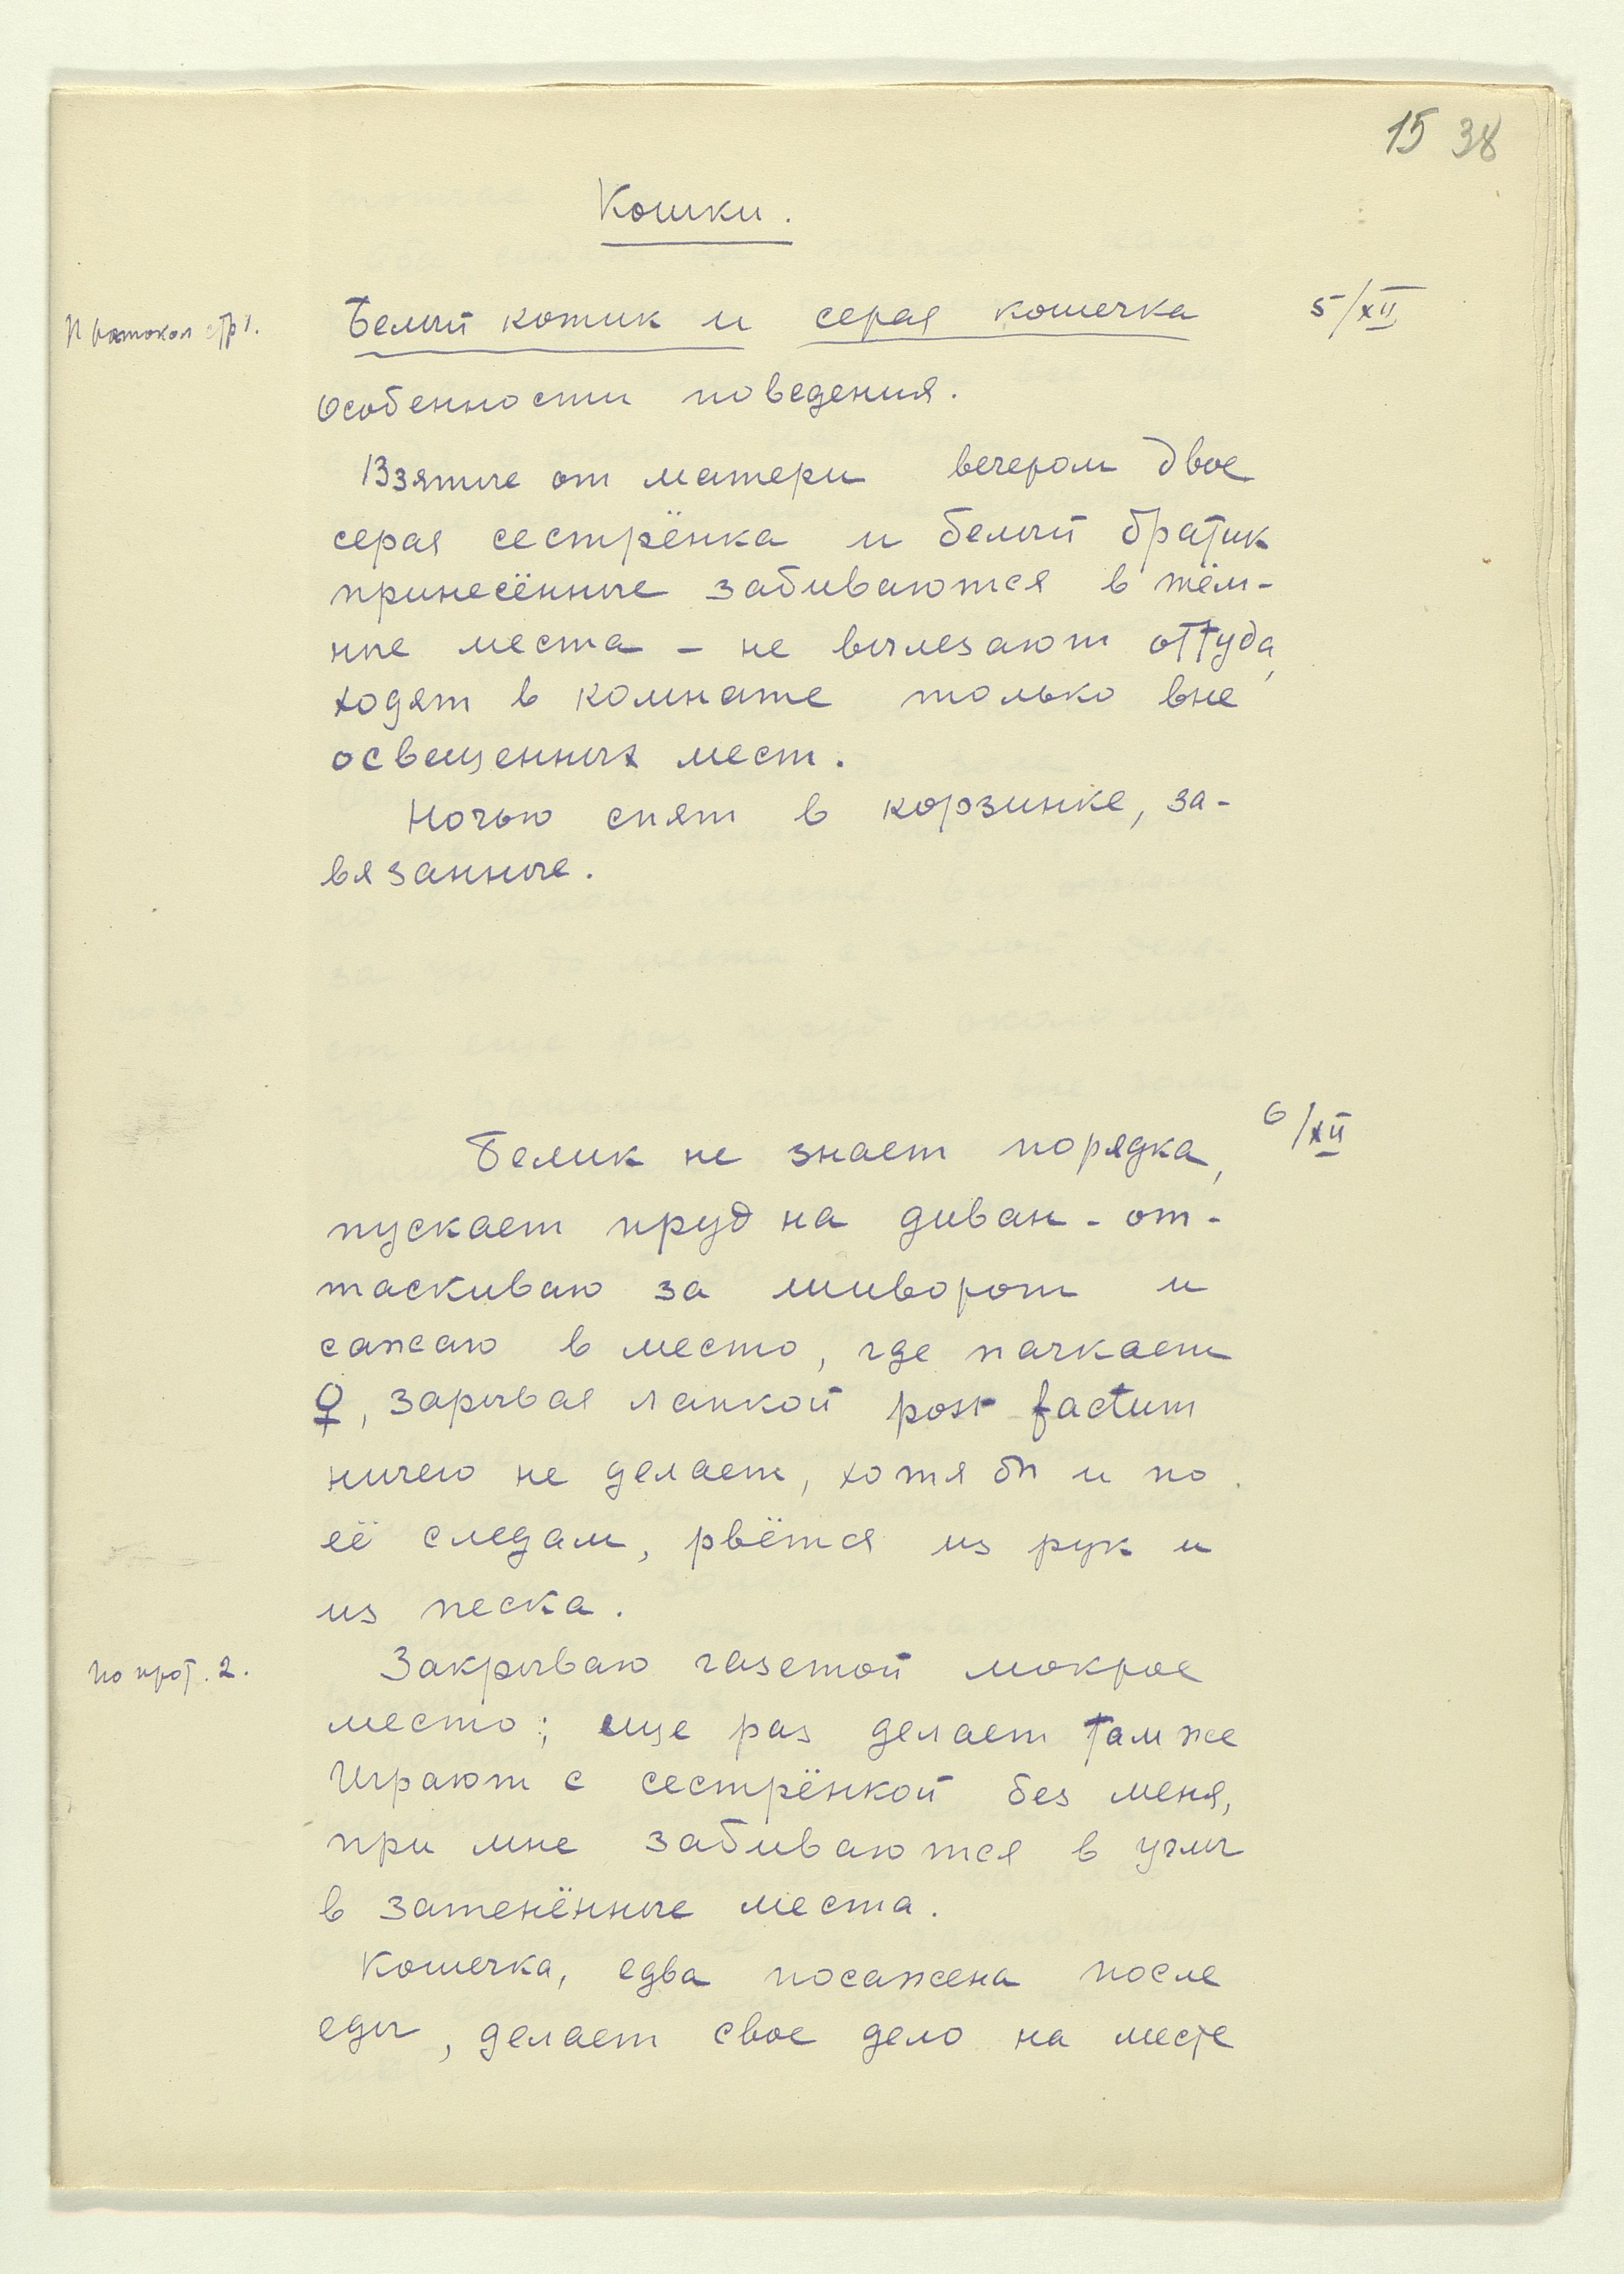 15 38
Кошки.
Протокол стр 1.
Белый котик и серая кошечка 5/XII
Особенности поведения.
Взятые от матери вечером двое
серая сестрёнка и белый братик
принесённые забиваются в тём-
ные места - не вылезают оттуда,
ходят в комнате только вне
освещенных мест.
Ночью спят в корзинке, за-
вязанные.
6/XII
Белик не знает порядка,
пускает пруд на диван - от-
таскиваю за шиворот и
сажаю в место, где пачкает
♀, зарывая лапкой post factum
ничего не делает, хотя бы и по
её следам, рвётся из рук и
из песка.
по прот. 2.
Закрываю газетой мокрое
место; еще раз делает там же
Играют с сестрёнкой без меня,
при мне забиваются в углы
в затенённые места.
Кошечка, едва посажена после
еды, делает свое дело на месте